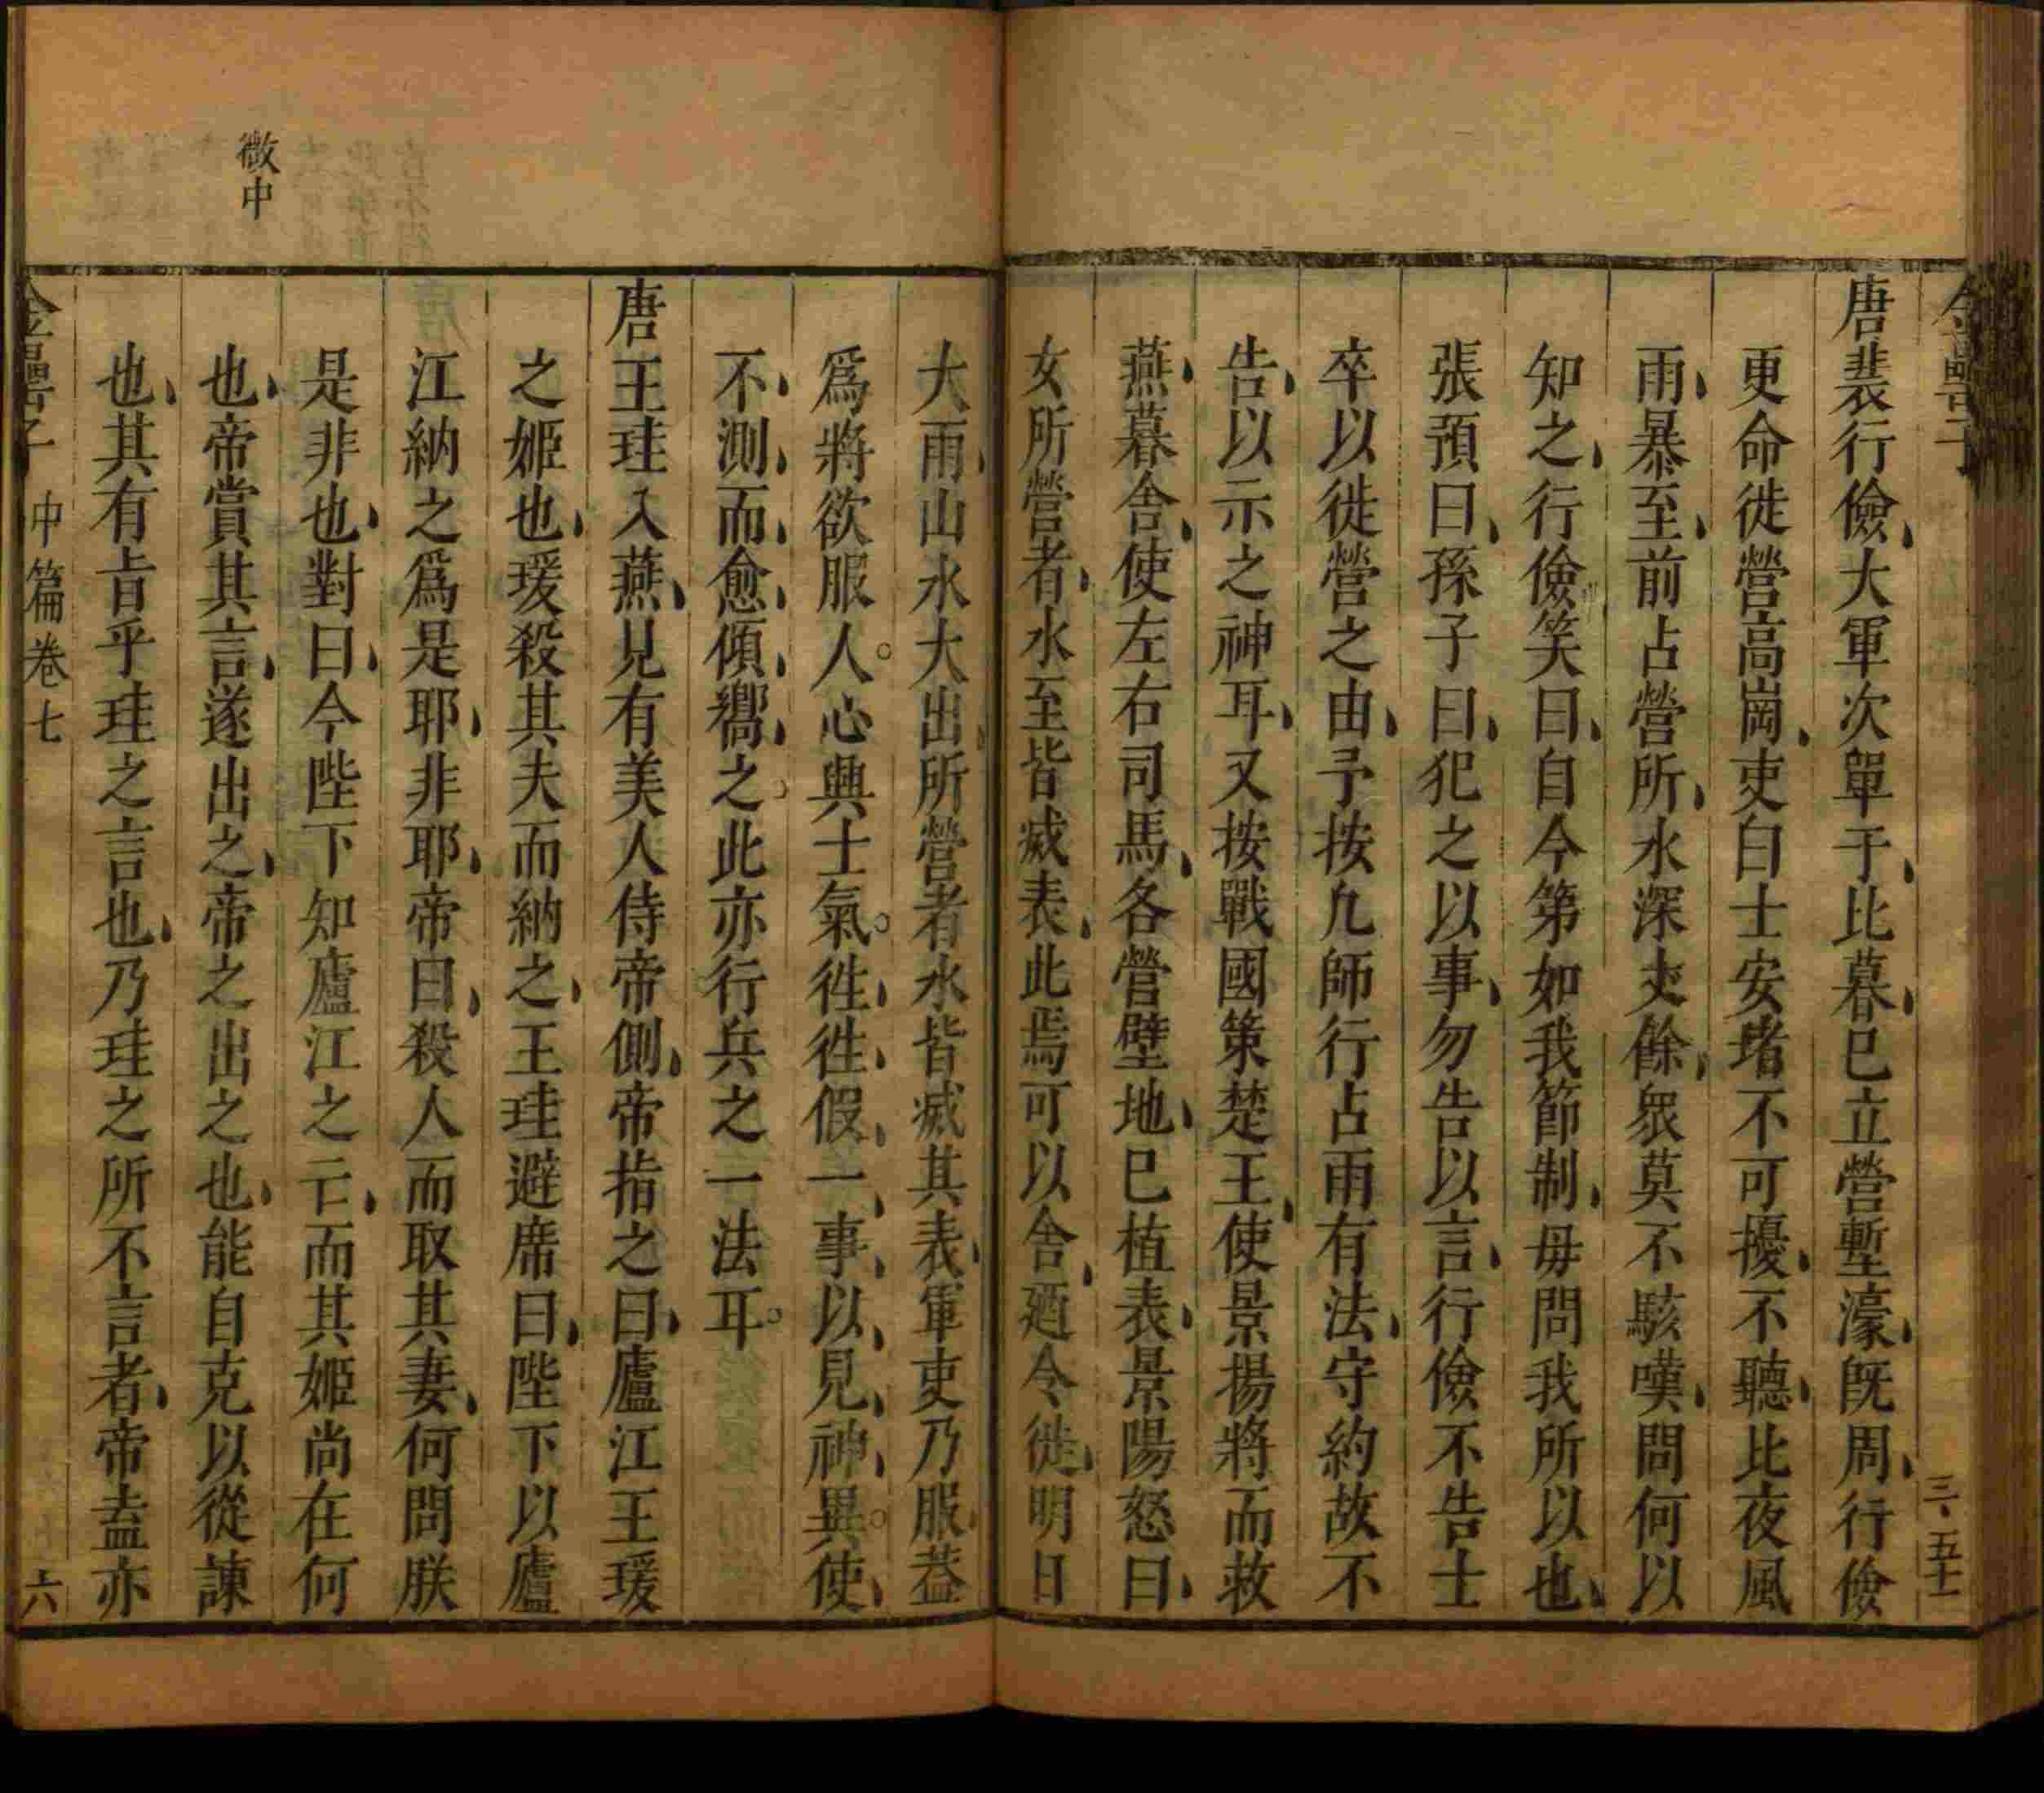 唐裴行儉大軍次單于比暮已立營塹濠旣周行儉
更命徙營高崗吏白士安堵不可擾不聽比夜風
雨暴至前占營所水深丈餘衆莫不駭嘆問何以
知之行儉笑曰自今第如我節制毋問我所以也
張預曰孫子曰犯之以事勿告以言行儉不告士
卒以徙營之由予按凢師行占雨有法守約故不
告以示之神耳又按戰國策楚王使景揚將而救
燕暮舍使左右司馬各營壁地已植表景陽怒曰
女所營者水至皆滅表此焉可以舍廼令徙明日
大雨山水大出所營者水皆滅其表軍吏乃服葢
爲將欲服人心與士氣徃徃假一事以見神異使
不測而愈傾嚮之此亦行兵之一法耳
唐王珪入燕見有美人侍帝側帝指之曰廬江王瑗
之姬也瑗殺其夫而納之王珪避席曰陛下以廬
江納之爲是耶非耶帝曰殺人而取其妻何問朕
是非也對曰今陛下知廬江之亡而其姬尚在何
也帝賞其言遂出之帝之出之也能自克以從諫
也其有旨乎珪之言也乃珪之所不言者帝盍亦
金罍子 中篇卷七 六